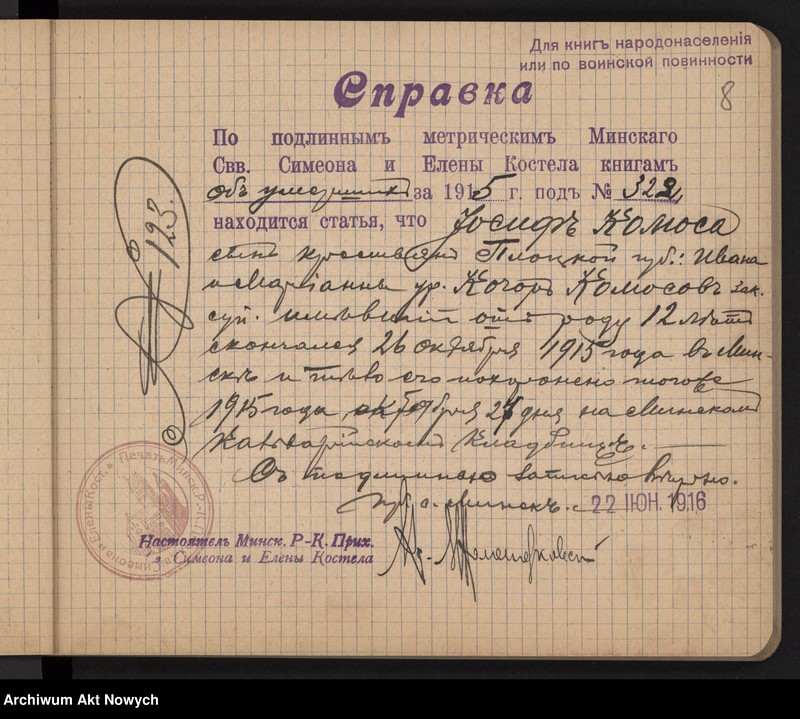 Для книгъ народонаселенія
или по воинской повинности
8
Справка
По подлиннымъ метрическимъ Минскаго
Свв. Симеона и Елены Костела книгамъ
объ умершихъ за 1915 г. подъ № 322,
находится статья, что Іосифъ Комоса
сынъ крестьянъ Плоцкой губ.: Ивана
и Маріанны ур. Комосовъ зак.
суп. имѣвшій отъ роду 12 лѣтъ
скончался 26 октября 1915 года въ Мин-
скѣ и тѣло его похоронено того же
1915 года октября 27 дня на Минскомъ
Кальварійскомъ Кладбищѣ.
Съ подлинною записью вѣрно.
г. Минскъ. 22 ІЮН. 1916
Настоятель Минск. Р-К. Прих.
Симеона и Елены Костела
№ 123.
Archiwum Akt Nowych